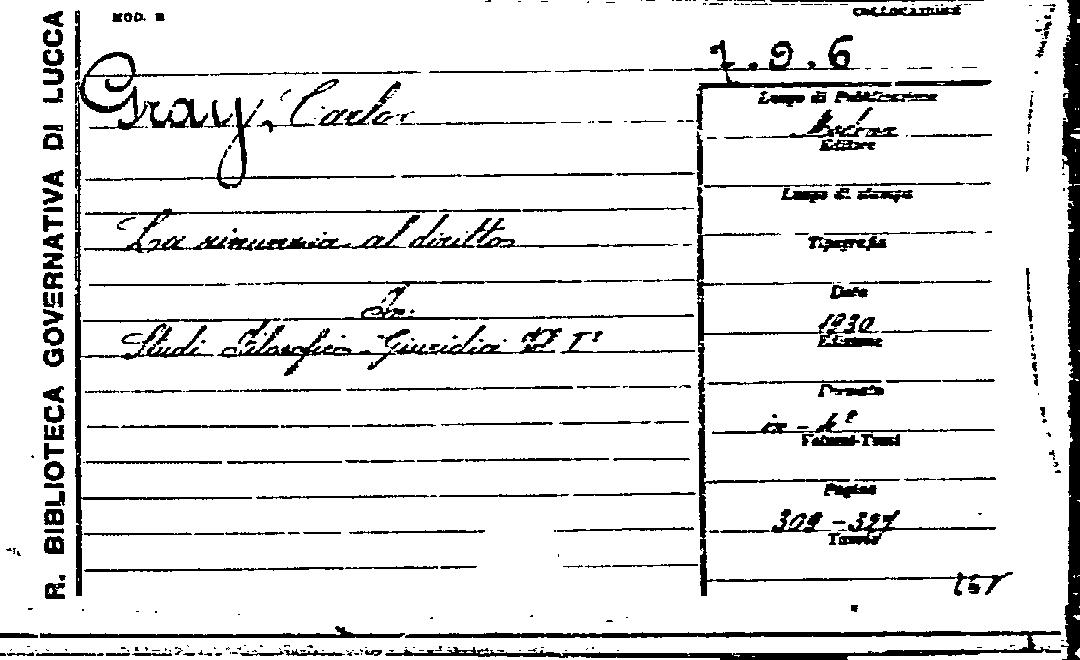 R. BIBLIOTECA GOVERNATIVA DI LUCCA
MOD. B
COLLOCAZIONE
7.9.6
Gray, Carlo
La rinunzia al diritto
In:
Studi Filosofico-Giuridici I°
Luogo di Pubblicazione
Modena
Editore
Luogo di stampa
Tipografia
Data
1930
Edizione
Formato
in-4°
Volumi-Tomi
Pagine
309-327
Tavole